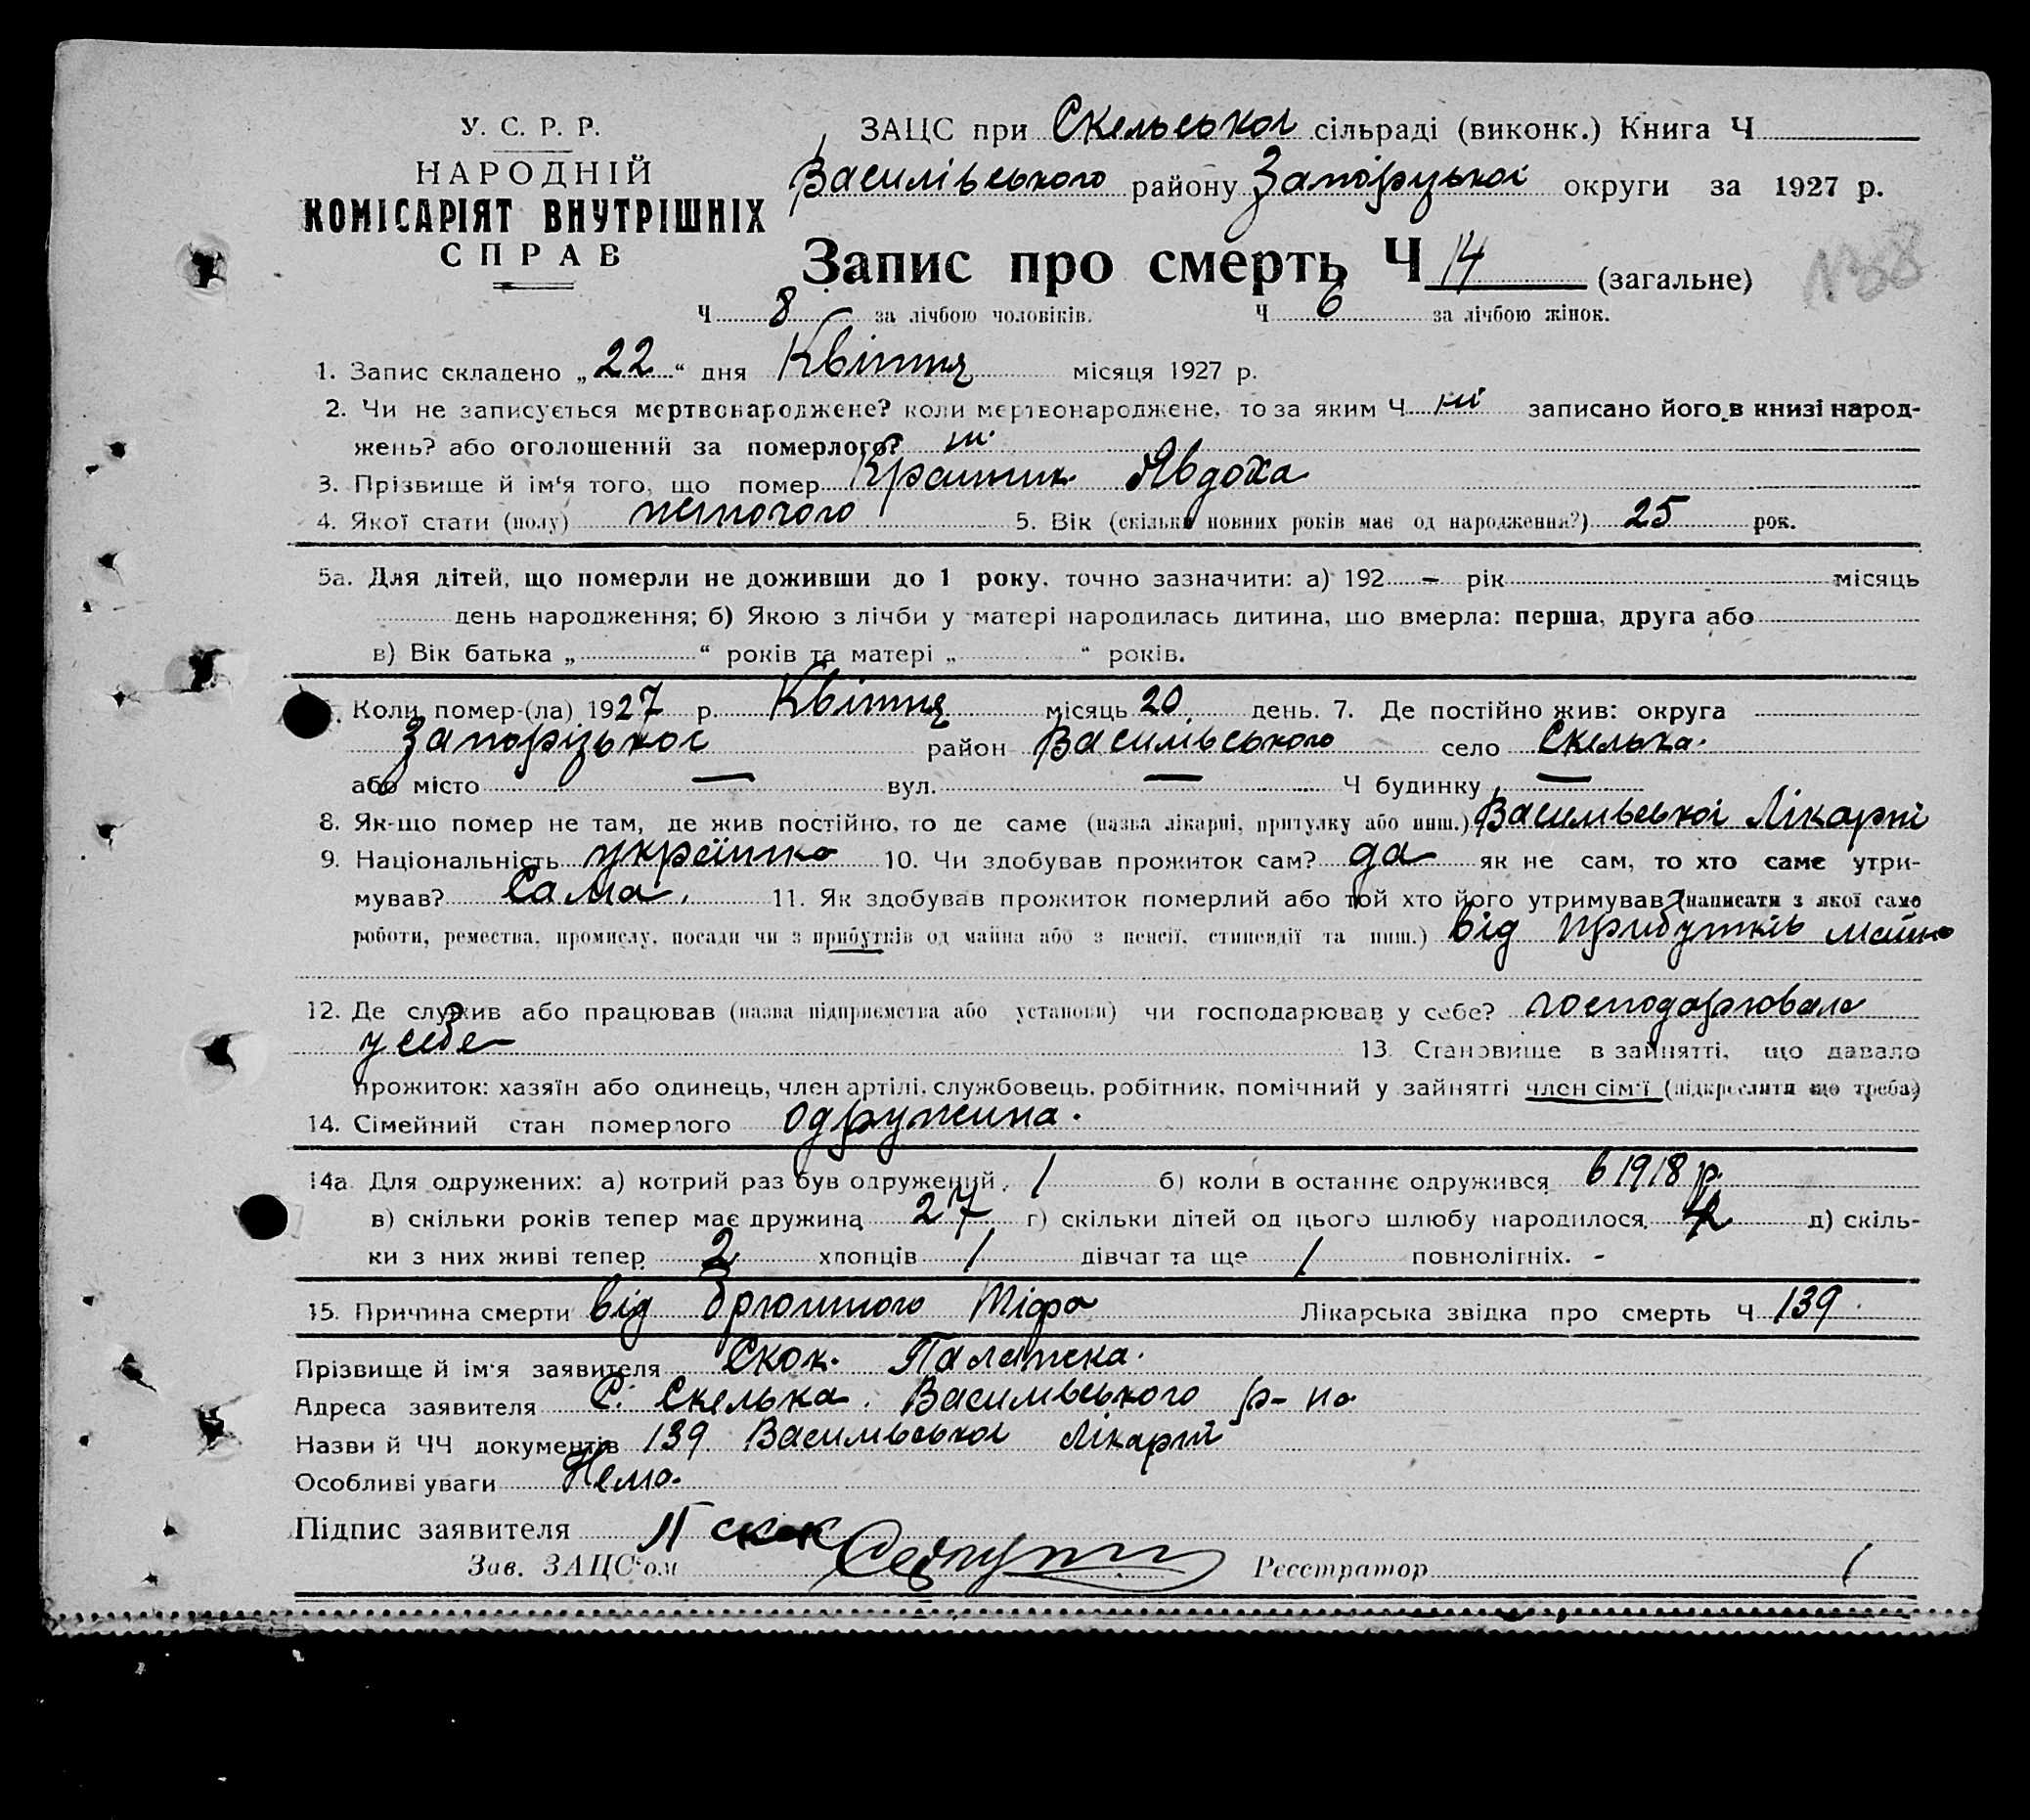 У. С. Р. Р.
НАРОДНІЙ
КОМІСАРІЯТ ВНУТРІШНІХ
СПРАВ
ЗАЦС при Скельської сільраді (виконк.) Книга Ч
Василівського району Запорізької округи за 1927 р.
Запис про смерть Ч 14 (загальне)
Ч 8 за лічбою чоловіків. Ч 6 за лічбою жінок.
1. Запис складено „22“ дня Квітня місяця 1927 р.
2. Чи не записується мертвонароджене? коли мертвонароджене, то за яким Ч ні записано його в книзі народ-
жень? або оголошений за померлого? ні.
3. Прізвище й ім'я того, що помер Явдоха
4. Якої стати (полу) жіночого 5. Вік (скільки повних років має од народження?) 25 рок.
5а. Для дітей, що померли не доживши до 1 року, точно зазначити: а) 192 – рік місяць
день народження; б) Якою з лічби у матері народилась дитина, що вмерла: перша, друга або
в) Вік батька „ “ років та матері „ “ років.
Коли помер-(ла) 1927 р. Квітня місяць 20 день. 7. Де постійно жив: округа
Запорізької район Василівського село Скелька.
або місто — вул. — Ч будинку —
8. Як-що помер не там, де жив постійно, то де саме (назва лікарні, притулку або инш.) Василівської Лікарні
9. Національність українка 10. Чи здобував прожиток сам? да як не сам, то хто саме утри-
мував? Сама. 11. Як здобував прожиток померлий або той хто його утримував (написати з якої само
роботи, ремества, промислу, посади чи з прибутків од майна або з пенсії, стипендії та инш.) від прибутків майна
12. Де служив або працював (назва підприємства або установи) чи господарював у себе? господарювала
у себе 13. Становище в зайнятті, що давало
прожиток: хазяїн або одинець, член артілі, службовець, робітник, помічний у зайнятті член сім'ї (підкреслити що треба)
14. Сімейний стан померлого одружина.
14а Для одружених: а) котрий раз був одружений 1 б) коли в останнє одружився в 1918 р.
в) скільки років тепер має дружина 27 г) скільки дітей од цього шлюбу народилося д) скіль-
ки з них живі тепер 2 хлопців 1 дівчат та ще 1 повнолітніх. -
15. Причина смерти від брюшного Тіфа Лікарська звідка про смерть Ч 139
Прізвище й ім'я заявителя Скок. Палажка.
Адреса заявителя С. Скелька. Василівського р-на
Назви й ЧЧ документів 139 Василівської Лікарні
Особливі уваги Нема.
Підпис заявителя П Скок
Зав. ЗАЦС'ом Реєстратор